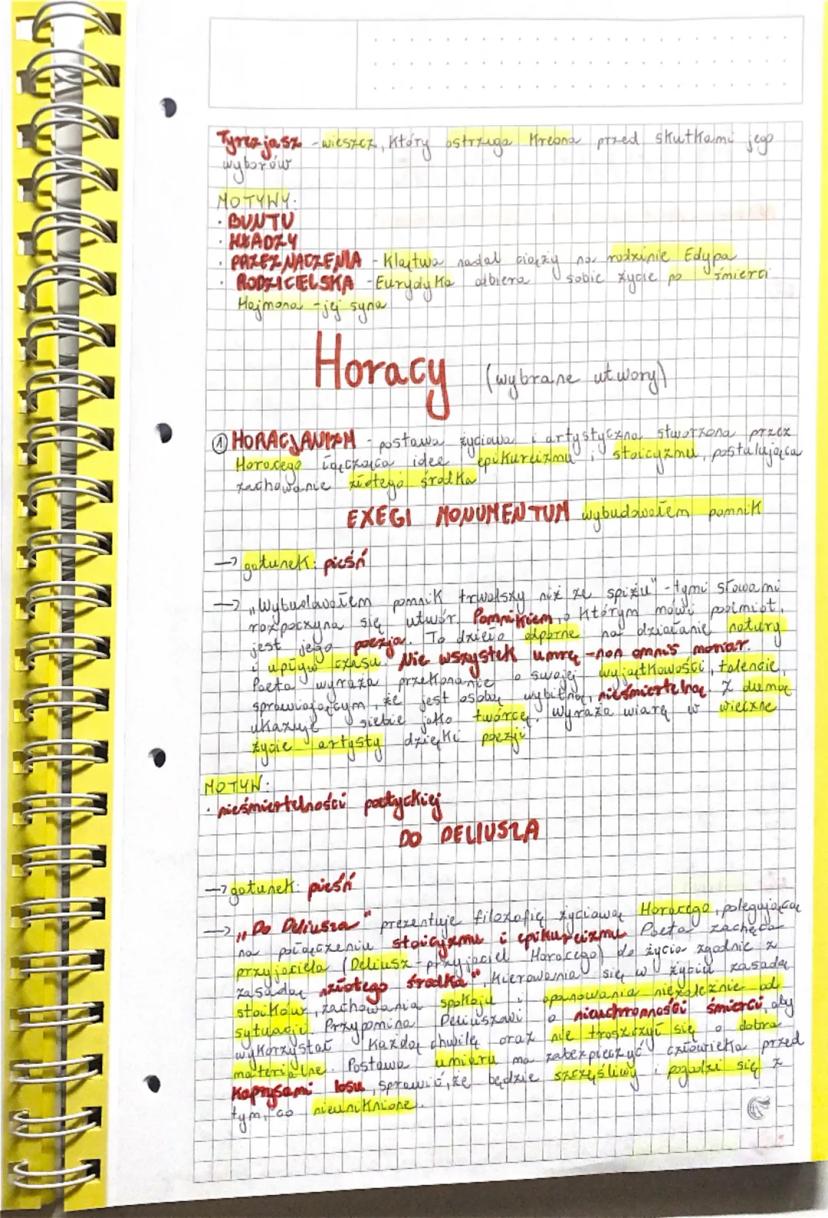 Tyrezjasz - wieszcz, który ostrzega Kreona przed skutkami jego
wyborów
MOTYWY:
· BUNTU
· WŁADZY
· PRZEZNACZENIA - Klątwa nadal ciąży na rodzinie Edypa
· RODZICIELSKA - Eurydyka odbiera sobie życie po śmierci
Hajmona - jej syna
Horacy (wybrane utwory)
① HORACJANIZM - postawa życiowa i artystyczna stworzona przez
Horacego łącząca idee epikureizmu i stoicyzmu, postulująca
zachowanie złotego środka
EXEGI MONUMENTUM wybudowałem pomnik
→ gatunek: pieśń
→ „Wybudowałem pomnik trwalszy niż ze spiżu" - tymi słowami
rozpoczyna się utwór. Pomnikiem, o którym mówi podmiot,
jest jego poezja. To dzieło odporne na działanie natury
i upływ czasu. Nie wszystek umrę - non omnis moriar.
Poeta wyraża przekonanie o swojej wyjątkowości, talencie,
sprawiającym, że jest osobą wybitną, nieśmiertelną. Z dumą
ukazuje siebie jako twórcę. Wyraża wiarę w wieczne
życie artysty dzięki poezji.
MOTYW:
· nieśmiertelności poetyckiej
DO DELIUSZA
→ gatunek: pieśń
→ „Do Deliusza" prezentuje filozofię życiową Horacego, polegającą
na połączeniu stoicyzmu i epikureizmu. Poeta zachęca
przyjaciela (Deliusz - przyjaciel Horacego) do życia zgodnie z
zasadą „złotego środka", kierowania się w życiu zasadą
stoików, zachowania spokoju i opanowania niezależnie od
sytuacji. Przypomina Deliuszowi o nieuchronności śmierci, aby
wykorzystał każdą chwilę oraz nie troszczył się o dobra
materialne. Postawa umiaru ma zabezpieczyć człowieka przed
kaprysami losu, sprawić, że będzie szczęśliwy i pogodzi się z
tym, co nieuniknione.